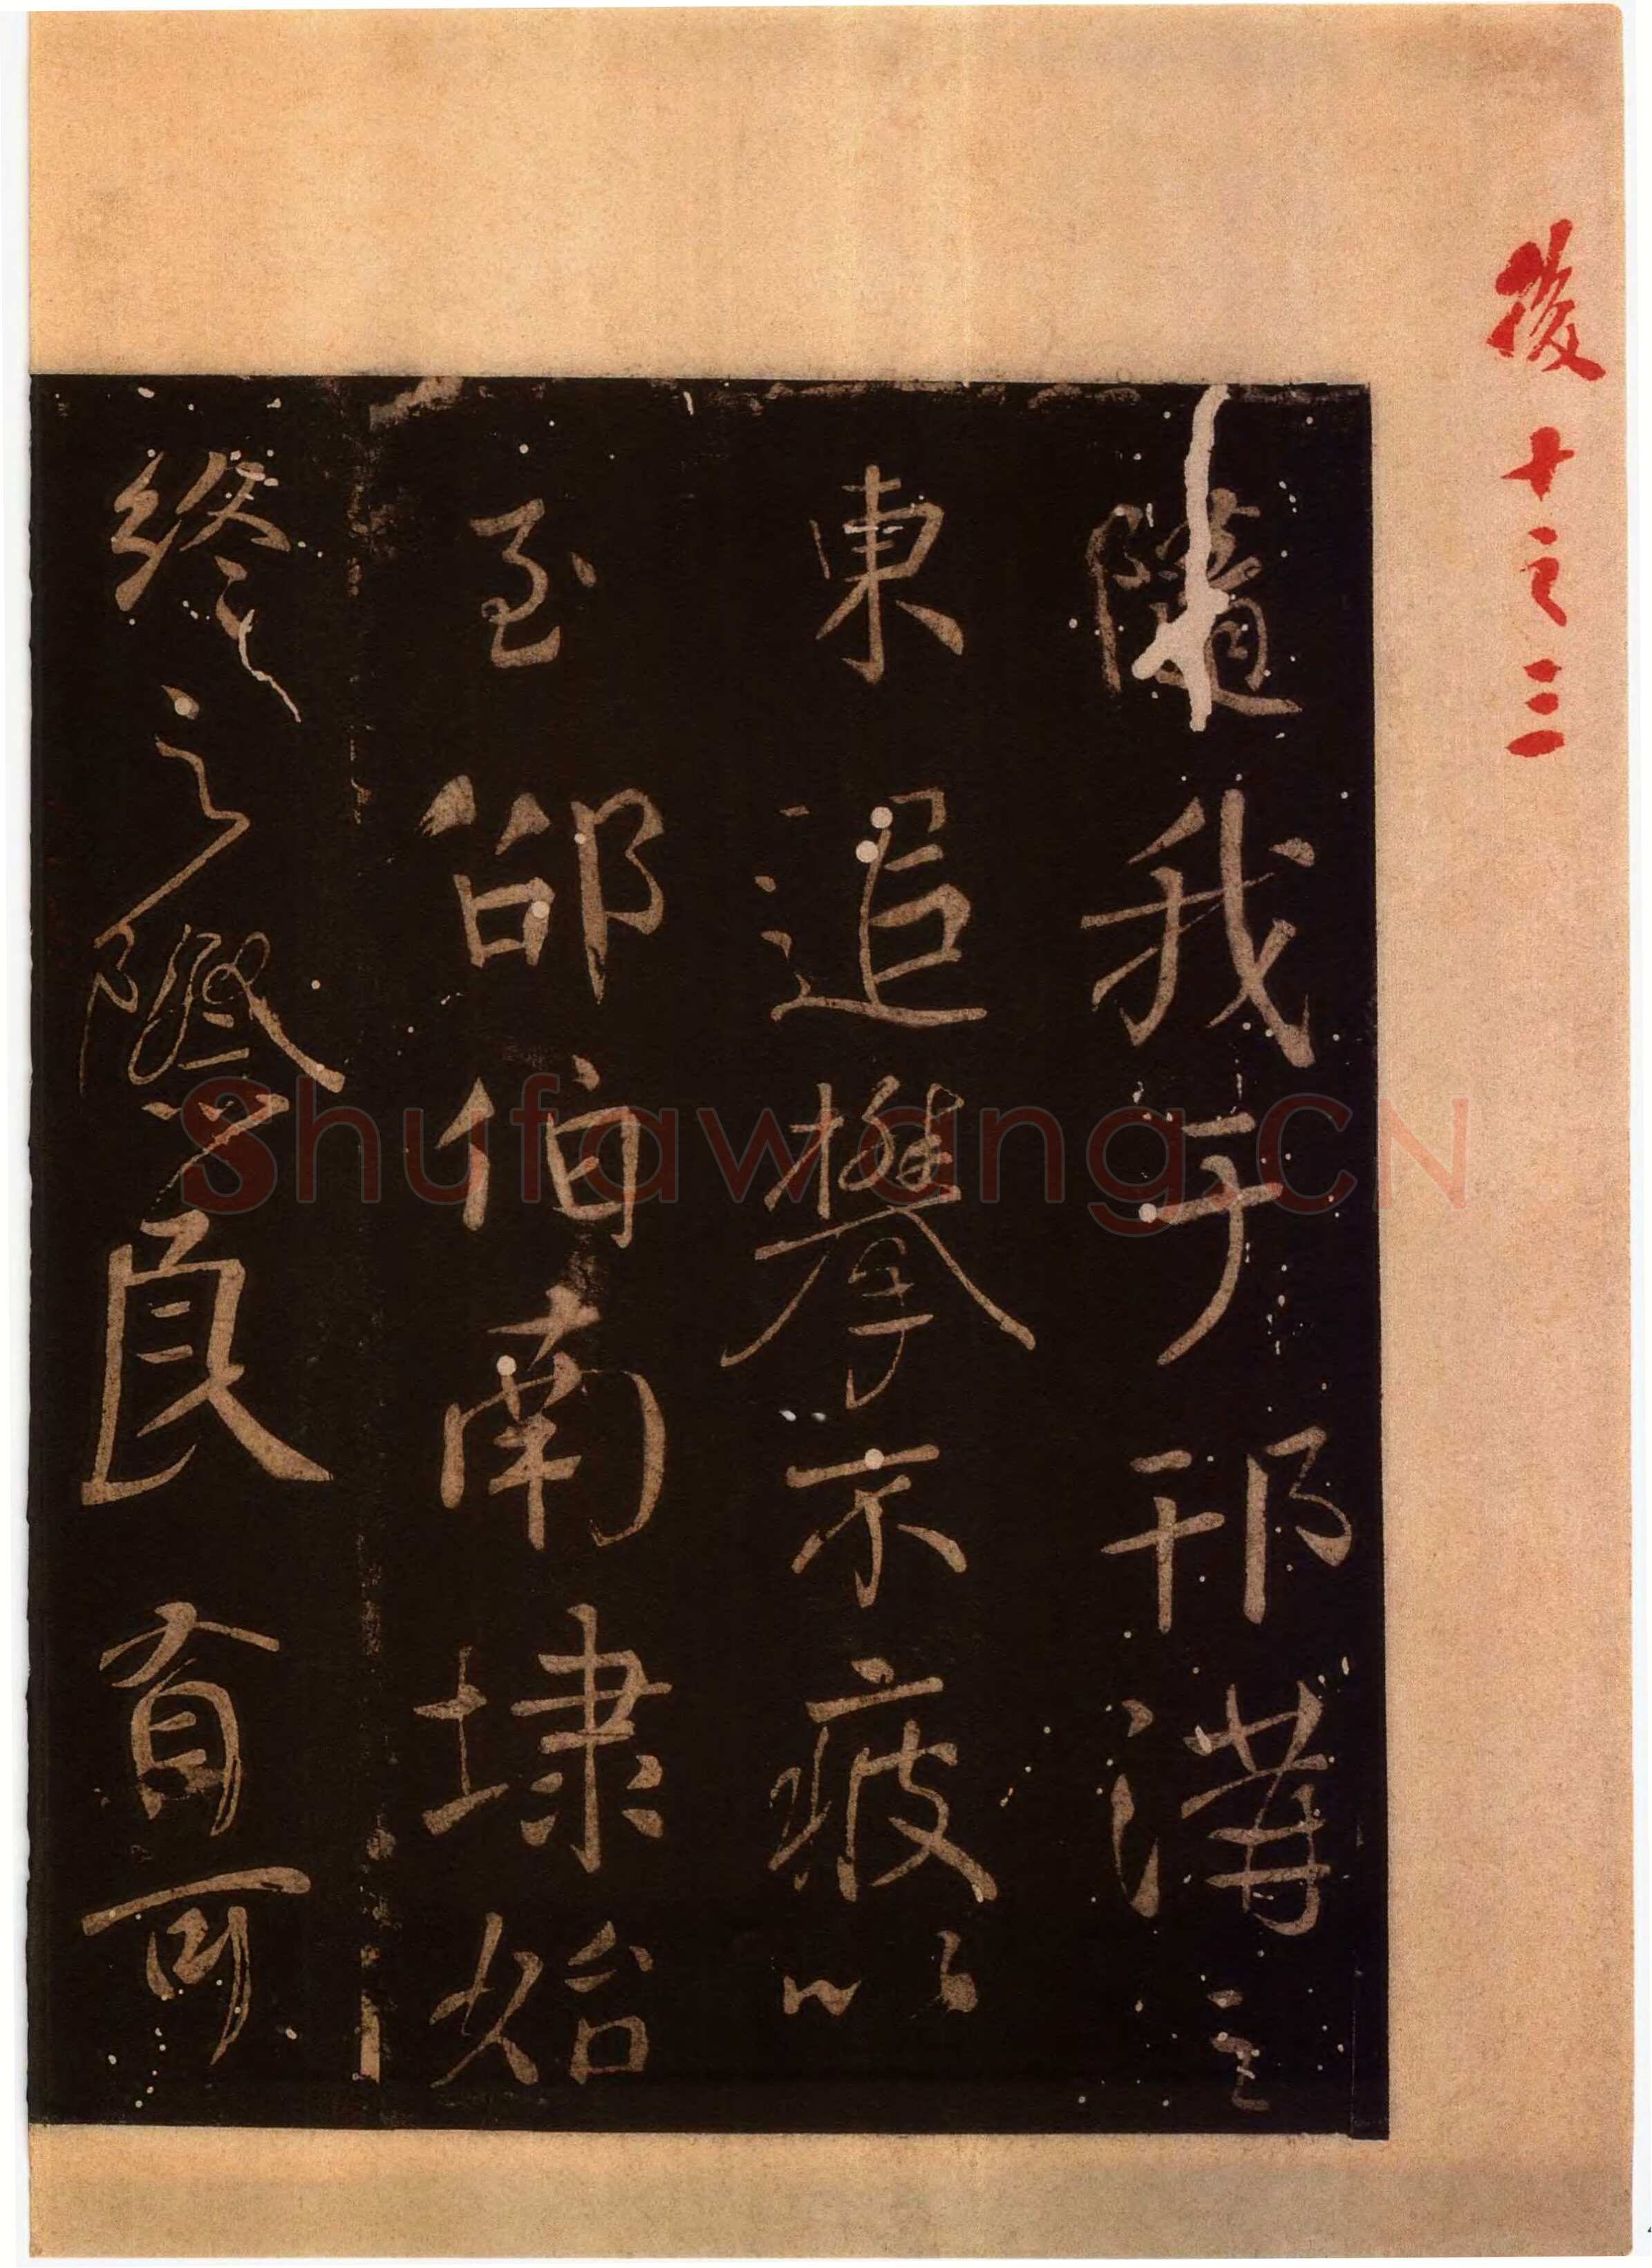 後十之三
隨我于邗溝之
東追攀不疲以
至邵伯南埭始
終之際良有可
Shufawang.CN